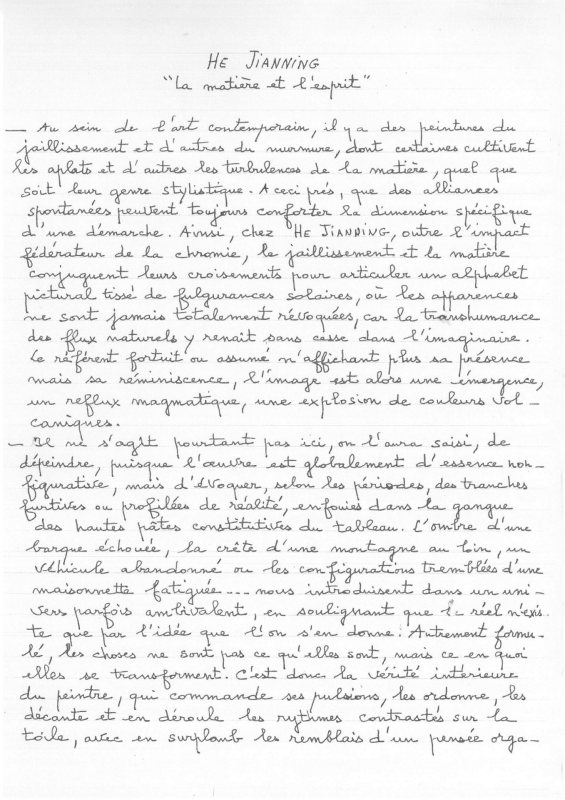 HE JIANNING
"La matière et l'esprit"
— Au sein de l'art contemporain, il y a des peintures du
jaillissement et d'autres du murmure, dont certaines cultivent
les aplats et d'autres les turbulences de la matière, quel que
soit leur genre stylistique. A ceci près, que des alliances
spontanées peuvent toujours conforter la dimension spécifique
d'une démarche. Ainsi, chez HE JIANNING, outre l'impact
fédérateur de la chromie, le jaillissement et la matière
conjuguent leurs croisements pour articuler un alphabet
pictural tissé de fulgurances solaires, où les apparences
ne sont jamais totalement révoquées, car la transhumance
des flux naturels y renaît sans cesse dans l'imaginaire.
Le référent fortuit ou assumé n'affichant plus sa présence
mais sa réminiscence, l'image est alors une émergence,
un reflux magmatique, une explosion de couleurs vol-
caniques.
— Il ne s'agit pourtant pas ici, on l'aura saisi, de
dépeindre, puisque l'œuvre est globalement d'essence non-
figurative, mais d'évoquer, selon les périodes, des tranches
furtives ou profilées de réalité, enfouies dans la gangue
des hautes pâtes constitutives du tableau. L'ombre d'une
barque échouée, la crête d'une montagne au loin, un
véhicule abandonné ou les configurations tremblées d'une
maisonnette fatiguée... nous introduisent dans un uni-
vers parfois ambivalent, en soulignant que le réel n'exis-
te que par l'idée que l'on s'en donne. Autrement formu-
lé, les choses ne sont pas ce qu'elles sont, mais ce en quoi
elles se transforment. C'est donc la vérité intérieure
du peintre, qui commande ses pulsions, les ordonne, les
décante et en déroule les rythmes contrastés sur la
toile, avec en surplomb les remblais d'un pensée orga-